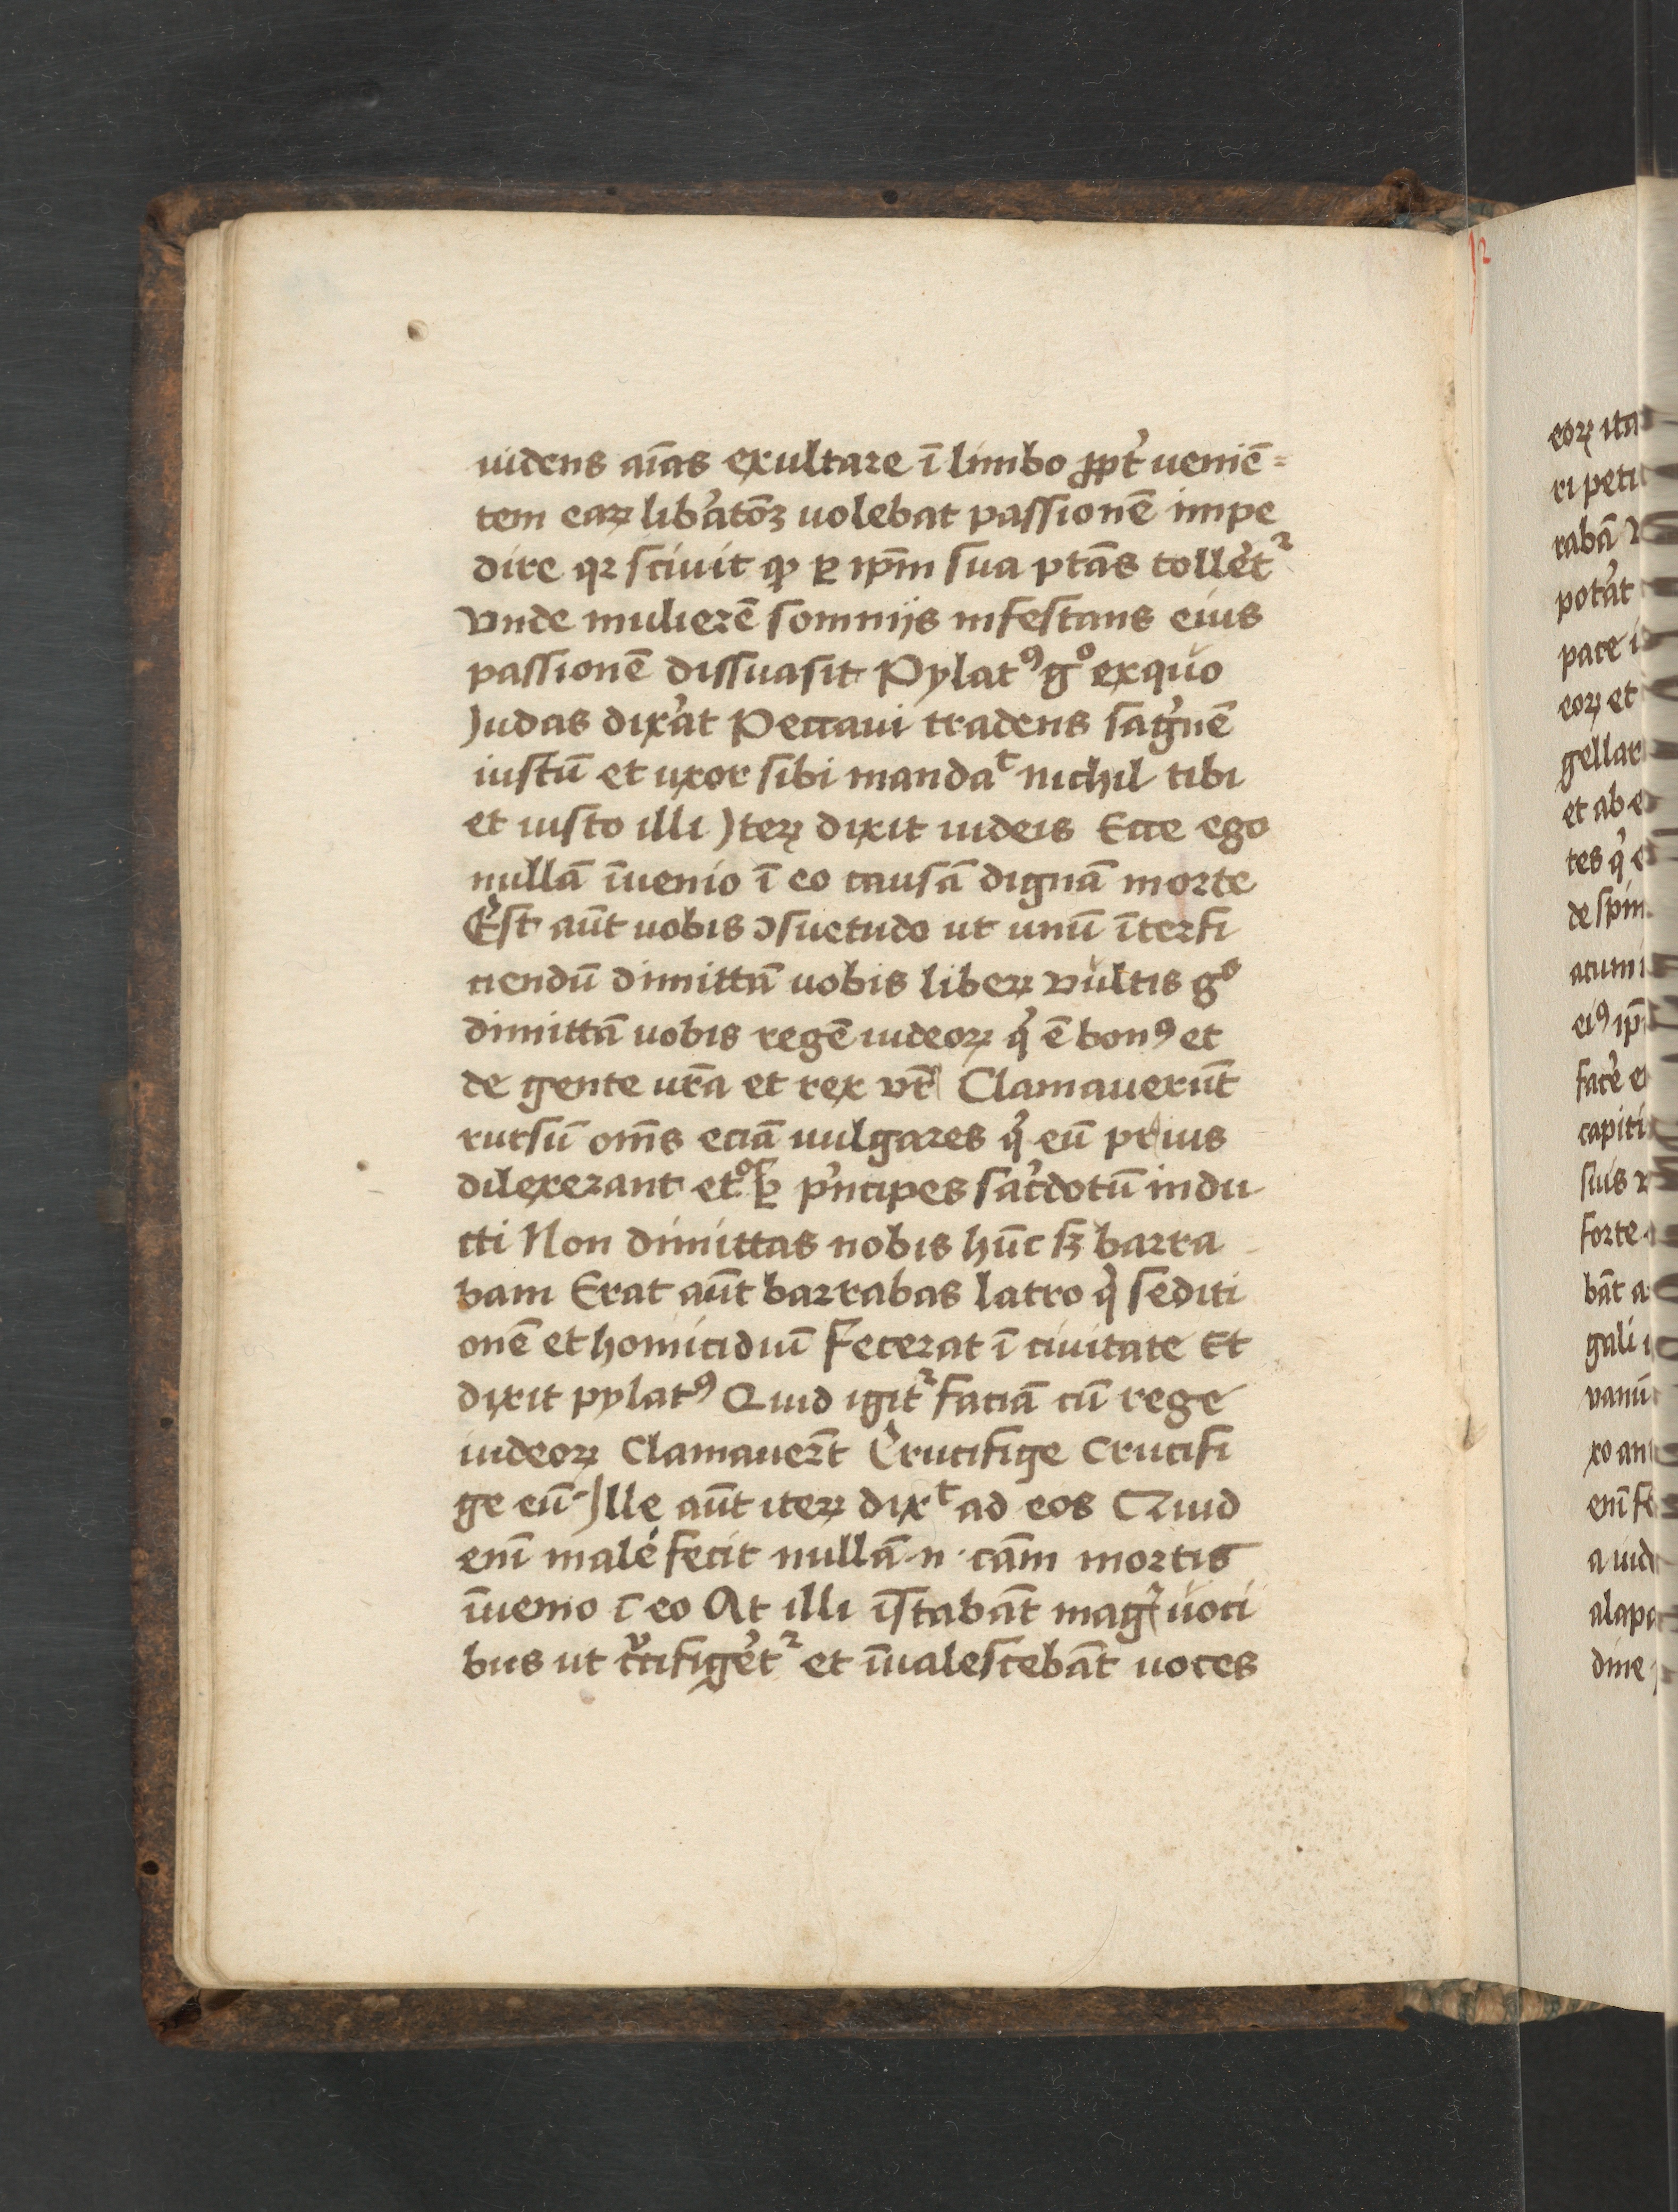 uidens aīas exultare ī limbo ꝓpt̓ ueniē=
tem eaꝝ lib̓atōꝫ uolebat passionē impe
dire qꝛ sciuit ꝙ ꝑ ip̄m sua ptās tolle̓tᷣ
vnde mulierē somnijs infestans eius
passionē dissuasit Pylatꝰ gͦ exquo
Judas dix̓at Peccaui tradens sag̓nē
iustū et uxor sibi mandaᵗ nichil tibi
et iusto illi Jteꝝ dixit iudeis Ecce ego
nullā īuenio ī eo causā dignā morte
Est aūt uobis ꝯsuetudo ut unū īterfi
ciendū dimittā uobis libeꝝ vultis gͦ
dimittā uobis regē iudeoꝝ q̓ ē bonꝰ et
de gente ur̄a et rex vr̄ Clamauerūt
rursū om̄s eciā uulgares q̓ eū prius
dilexerant et ꝑ pͥncipes sac̓dotū indu
cti Non dimittas nobis hūc sꝫ barra
bam Erat aūt barrabas latro q̓ sediti
onē et homicidiū fecerat ī ciuitate Et
dixit pylatꝰ Quid igitᷣ faciā cū rege
iudeoꝝ Clamauer̄t Crucifige Crucifi
ge eū Jlle aūt iteꝝ dixᵗ ad eos Quid
enī male fecit nullā .n. cām mortis
īuenio ī eo At illi īstabāt mag̓ uoci
bus ut cͬcifige̓tᷣ et īualescebāt uoces
eoꝝ ita
ri peti
rabā
pot̓at
pace
eoꝝ et
gellar
et ab e
tes q̓ e
de spin
acumi
eiꝰ ip̄
fac̓e e
capiti
suis
forte
bāt a
gali
vanū
xo an
enī fe
a uid
alapa
dine